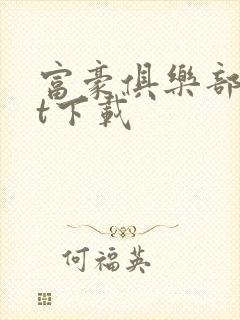 富豪俱樂部
t下載
何福英